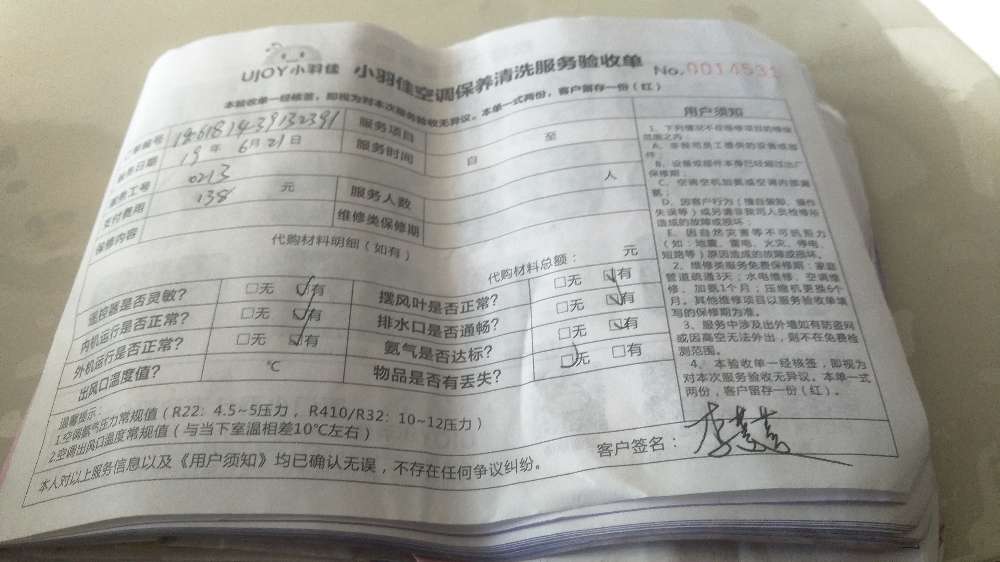 UJOY小羽佳 小羽佳空调保养清洗服务验收单 No.0014531
本验收单一经核签，即视为对本次服务验收无异议。本单一式两份，客户留存一份（红）
单编号 服务项目
服务日期 19年6月21日 服务时间 自 至
服务工号 0213 服务人数 人
支付费用 138 元 维修类保修期
保修内容
代购材料明细（如有） 代购材料总额： 元
遥控器是否灵敏？ □无 ☑有 摆风叶是否正常？ □无 ☑有
内机运行是否正常？ □无 ☑有 排水口是否通畅？ □无 ☑有
外机运行是否正常？ □无 ☑有 氨气是否达标？ □无 ☑有
出风口温度值？ ℃ 物品是否有丢失？ ☑无 □有
温馨提示：
1.空调氨气压力常规值（R22：4.5~5压力，R410/R32：10~12压力）
2.空调出风口温度常规值（与当下室温相差10℃左右）
本人对以上服务信息以及《用户须知》均已确认无误，不存在任何争议纠纷。
客户签名：
用户须知
1、下列情况不在维修项目的维保
范围之内：
A、非我司员工提供的设备或部
件；
B、设备或部件本身已经超过出厂
保修期；
C、空调空机加氨或空调内部漏
氨；
D、因客户行为（擅自拆卸、操作
失误等）或另请非我司人员检修所
造成的故障或损坏；
E、因自然灾害等不可抗拒力
（如：地震、雷电、火灾、停电、
短路等）原因造成的故障或损坏。
2、维修类服务免费保修期：家庭
管道疏通3天；水电维修、空调维
修、加氨1个月；压缩机更换6个
月。其他维修项目以服务验收单填
写的保修期为准。
3、服务中涉及出外墙如有防盗网
或因高空无法外出，则不在免费检
测范围。
4、本验收单一经核签，即视为
对本次服务验收无异议。本单一式
两份，客户留存一份（红）。